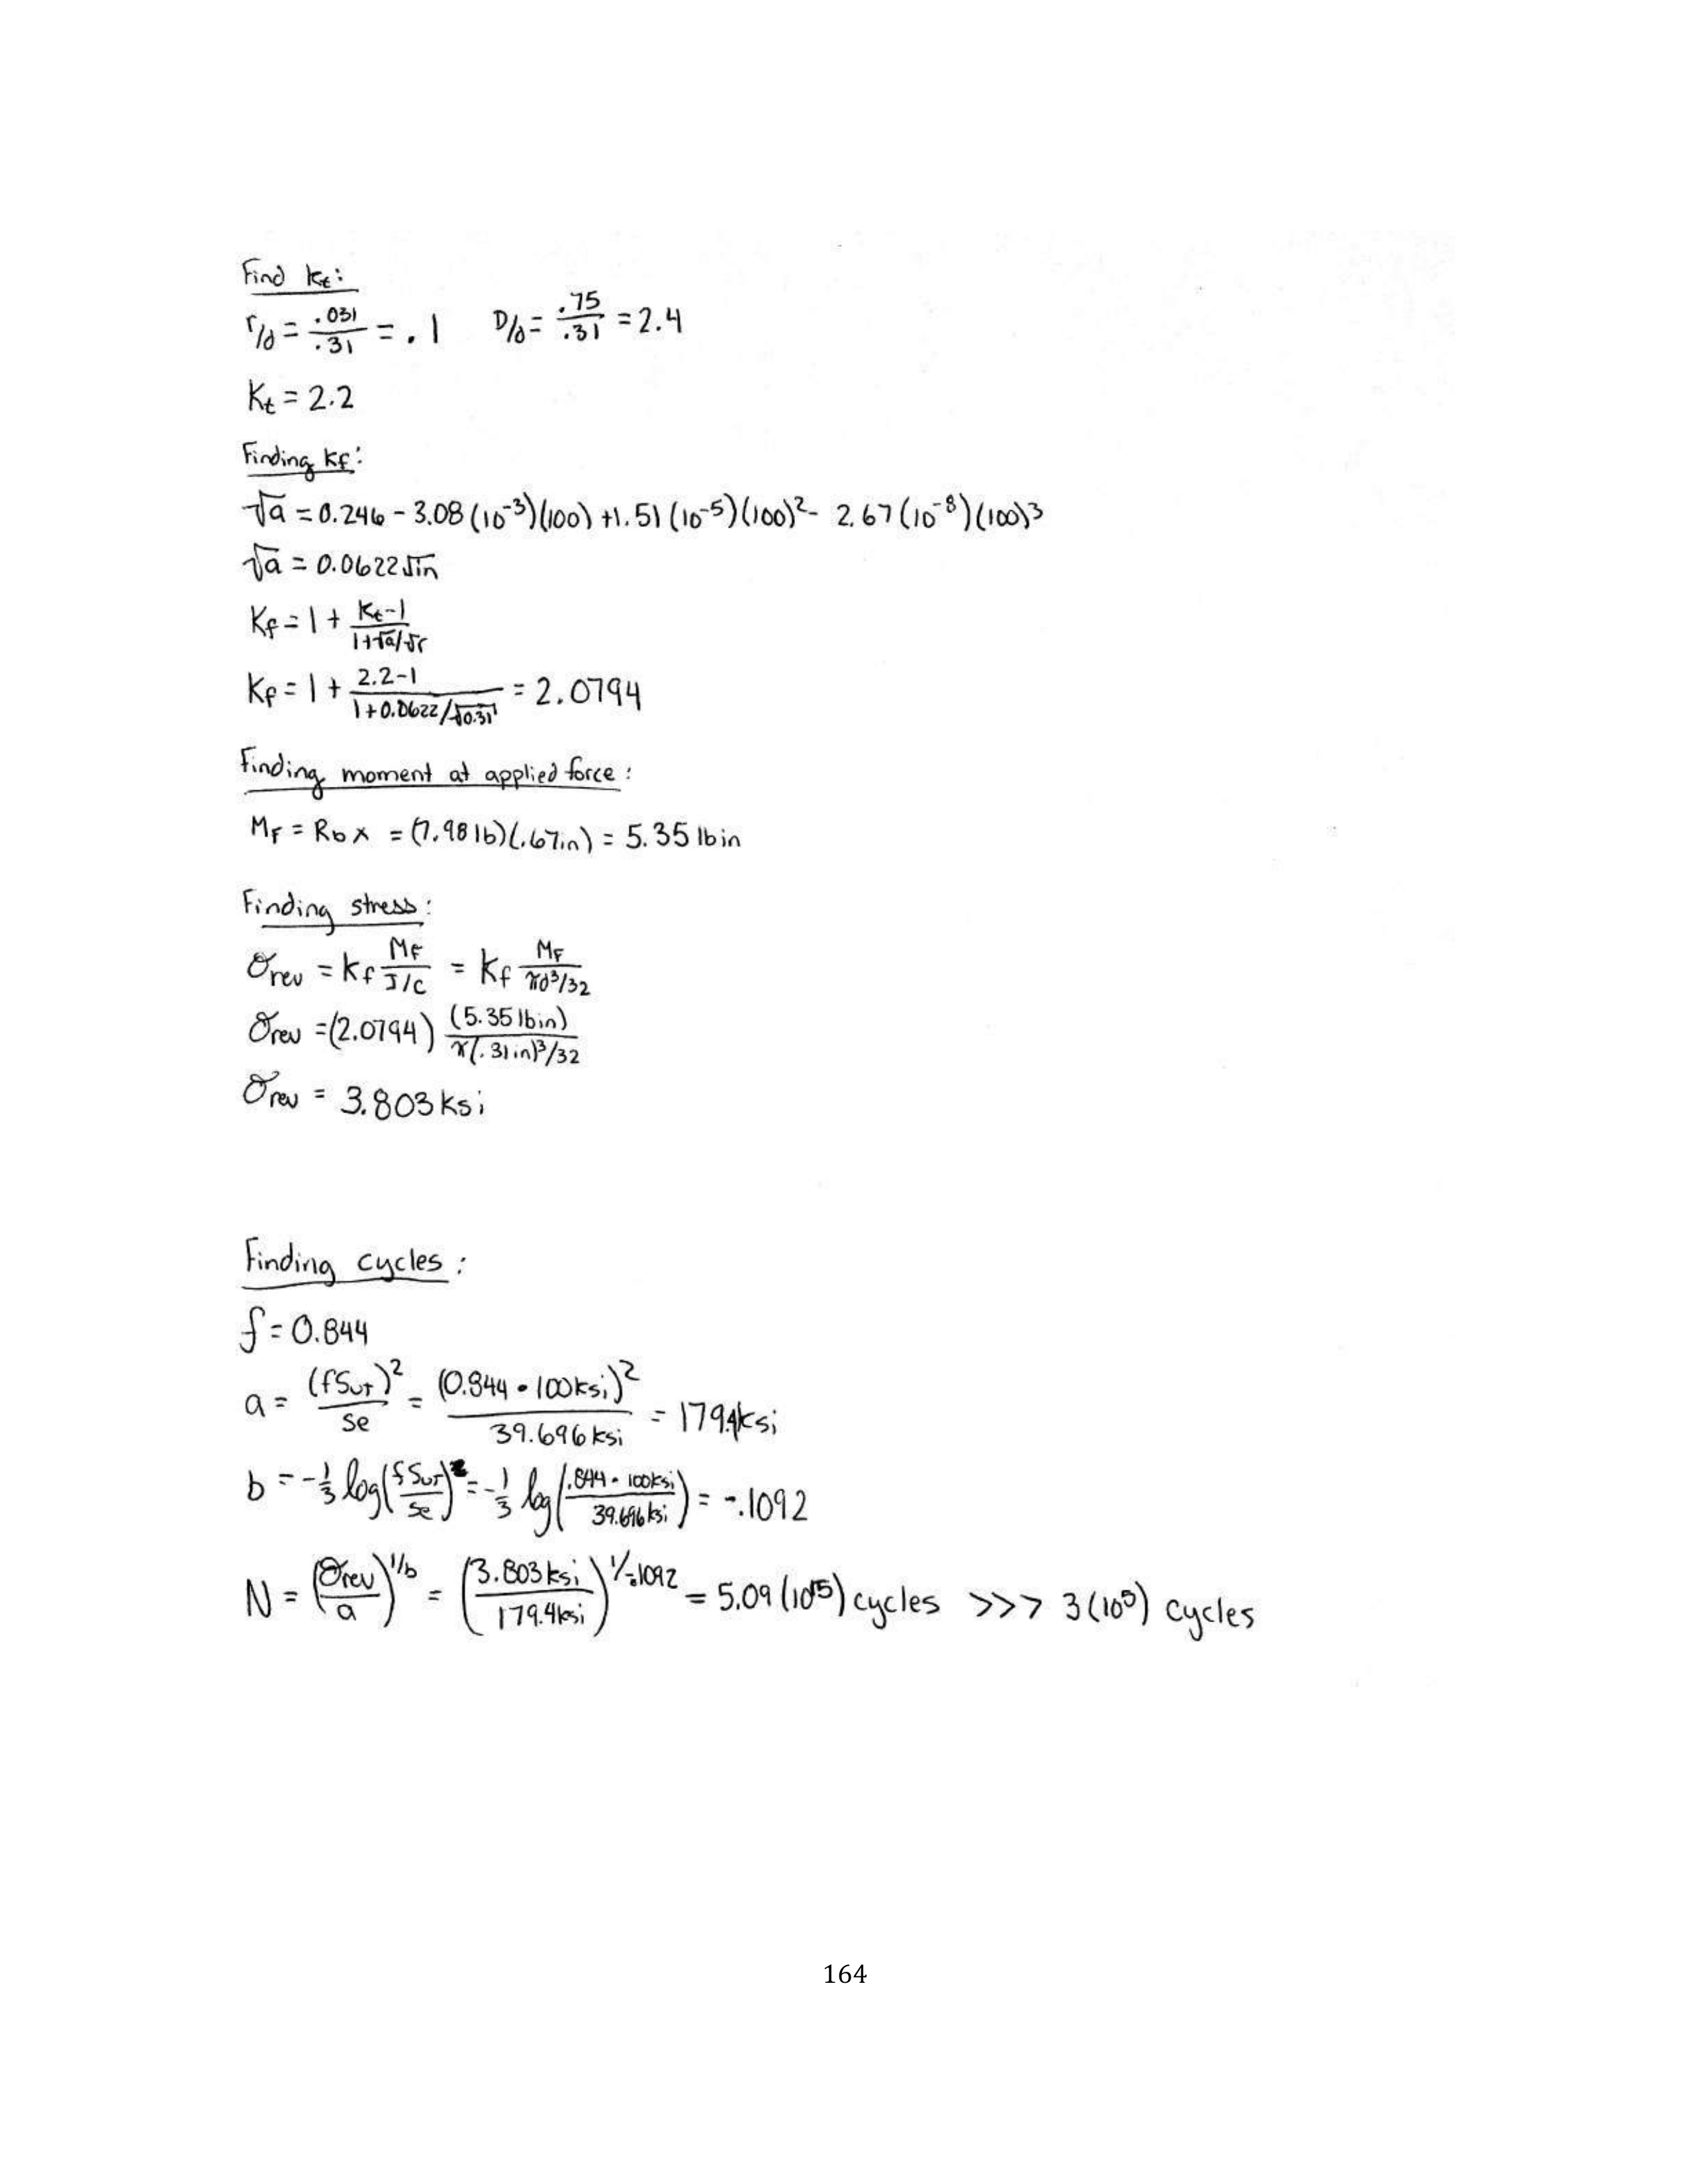 Find Kt:
r/d = .031/.31 = .1 D/d = .75/.31 = 2.4
Kt = 2.2
Finding Kf:
√a = 0.246 - 3.08(10⁻³)(100) + 1.51(10⁻⁵)(100)² - 2.67(10⁻⁸)(100)³
√a = 0.0622√in
Kf = 1 + (Kt-1)/(1+√a/√r)
Kf = 1 + (2.2-1)/(1+0.0622/√0.31) = 2.0794
Finding moment at applied force:
MF = Rb x = (7.98 lb)(.67in) = 5.35 lbin
Finding stress:
σrev = Kf MF/(I/c) = Kf MF/(πd³/32)
σrev = (2.0794) (5.35 lbin)/(π(.31in)³/32)
σrev = 3.803 ksi
Finding cycles:
f = 0.844
a = (fSut)²/Se = (0.844 • 100ksi)²/39.696 ksi = 179.4ksi
b = -1/3 log(fSut/Se) = -1/3 log(.844 • 100ksi/39.696ksi) = -.1092
N = (σrev/a)^1/b = (3.803 ksi/179.4ksi)^1/-.1092 = 5.09(10¹⁵) cycles >>> 3(10⁵) cycles
164